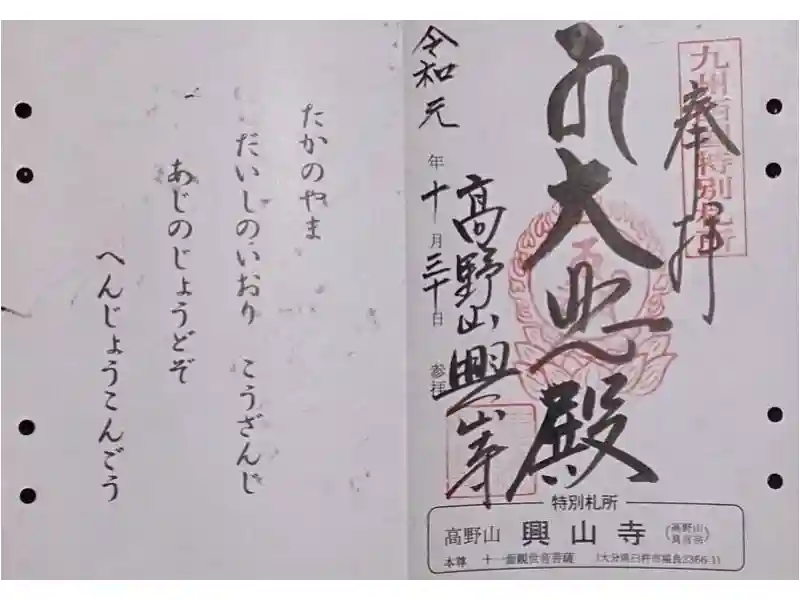 九州 特別札所
奉拝
大悲殿
高野山興山寺
令和元年十月三十日 参拝
特別札所
高野山 興山寺 (高野山真言宗)
本尊 十一面観世音菩薩 (大分県臼杵市福良2366-1)
たかのやま
だいしのいおり こうざんじ
あじのじょうどぞ
へんじょうこんごう